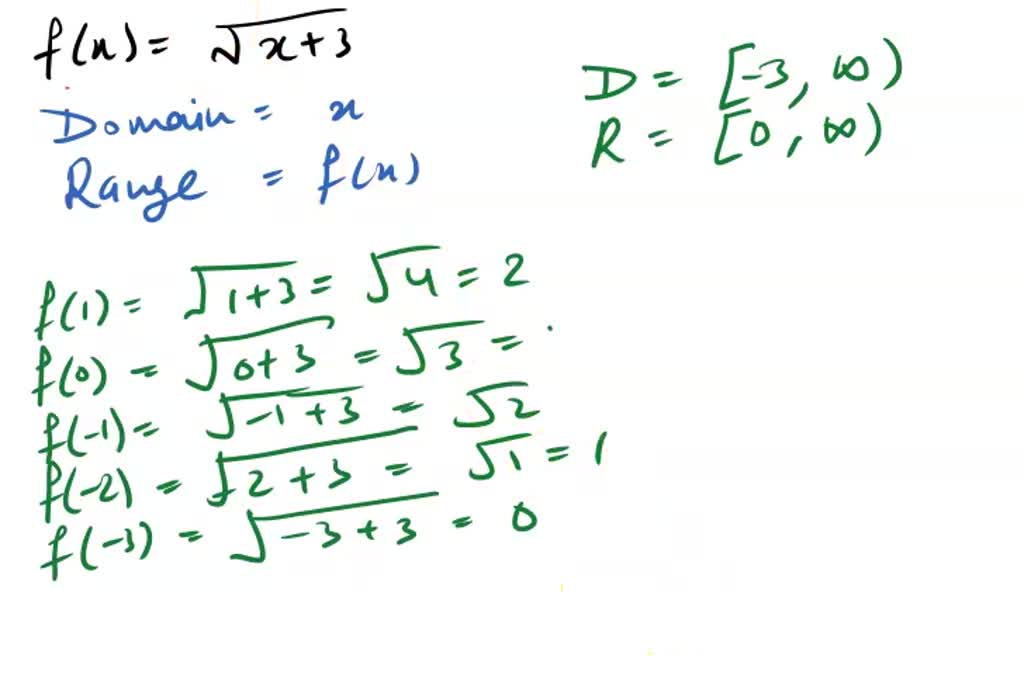 f(x) = √x+3
Domain = x
Range = f(x)
D = [-3, ∞)
R = [0, ∞)
f(1) = √1+3 = √4 = 2
f(0) = √0+3 = √3 = .
f(-1) = √-1+3 = √2
f(-2) = √2+3 = √1 = 1
f(-3) = √-3+3 = 0